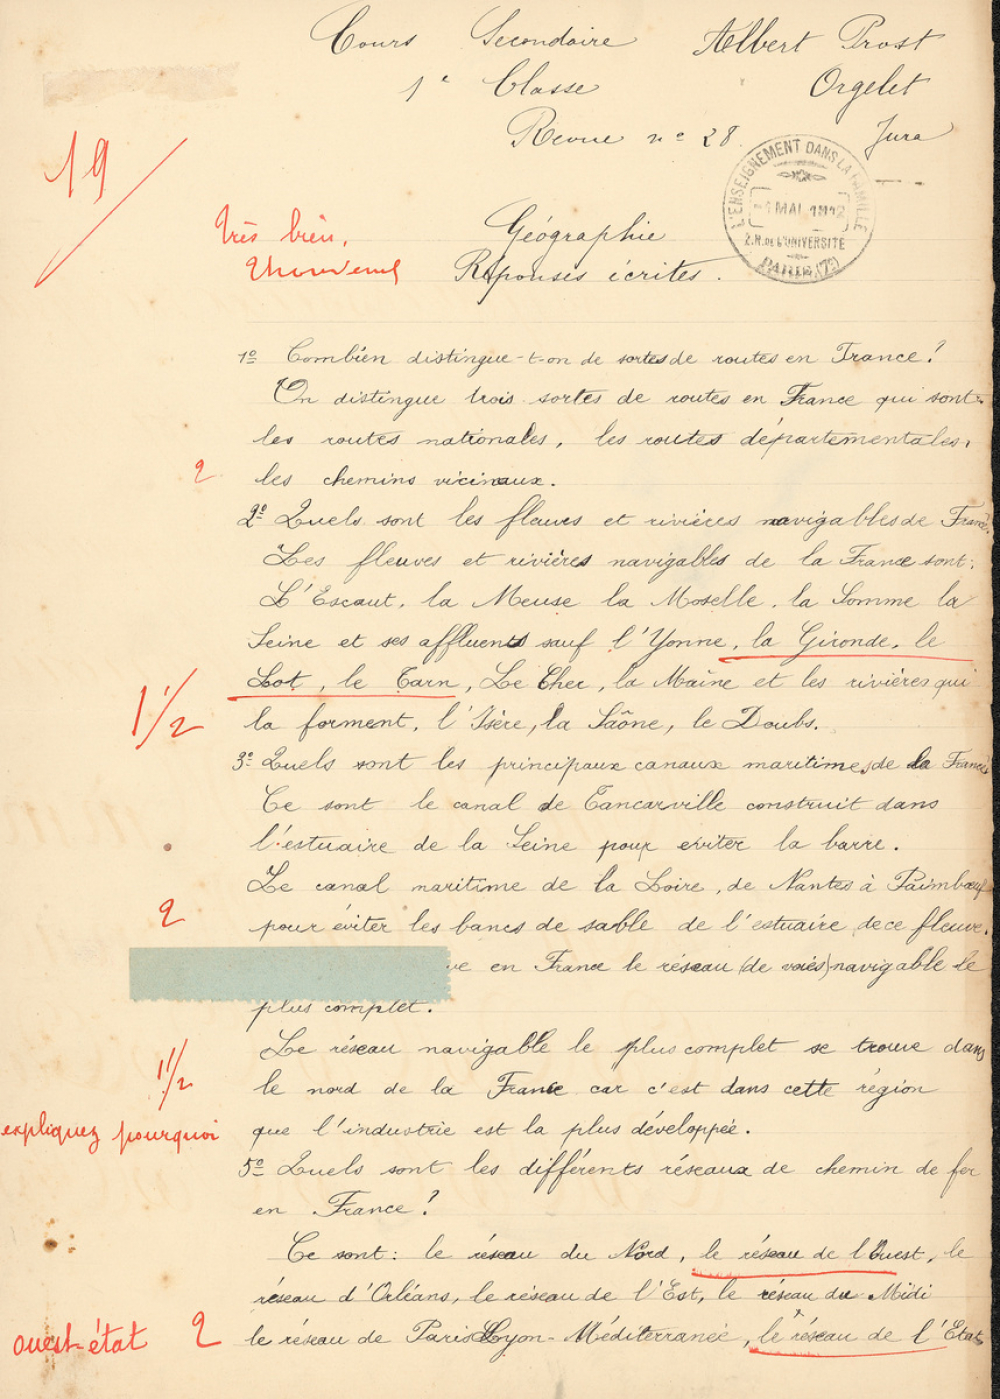 Cours Secondaire Albert Prost
1e Classe Orgelet
Revue no 28 Jura
L'ENSEIGNEMENT DANS LA FAMILLE
1 MAI 1912
2.R. DE L'UNIVERSITÉ
PARIS (7e)
19
Très bien, Géographie
Réponses écrites.
1o Combien distingue-t-on de sortes de routes en France?
On distingue trois sortes de routes en France qui sont:
les routes nationales, les routes départementales,
2 les chemins vicinaux.
2o Quels sont les fleuves et rivières navigables de France
Les fleuves et rivières navigables de la France sont:
L'Escaut, la Meuse la Moselle, la Somme la
Seine et ses affluents sauf l'Yonne, la Gironde, le
Lot, le Tarn, Le Cher, la Maine et les rivières qui
1 1/2 la forment, l'Isère, la Saône, le Doubs.
3o Quels sont les principaux canaux maritimes de la France
Ce sont le canal de Tancarville construit dans
l'estuaire de la Seine pour eviter la barre.
Le canal maritime de la Loire, de Nantes à Paimbœuf
2 pour éviter les bancs de sable de l'estuaire de ce fleuve.
ve en France le réseau (de voies) navigable le
plus complet.
Le réseau navigable le plus complet se trouve dans
1 1/2 le nord de la France car c'est dans cette région
expliquez pourquoi que l'industrie est la plus développée.
5o Quels sont les différents réseaux de chemin de fer
en France?
Ce sont: le réseau du Nord, le réseau de l'Ouest, le
réseau d'Orléans, le réseau de l'Est, le réseau du Midi
ouest-état 2 le réseau de Paris Lyon-Méditerranée, le réseau de l'Etat